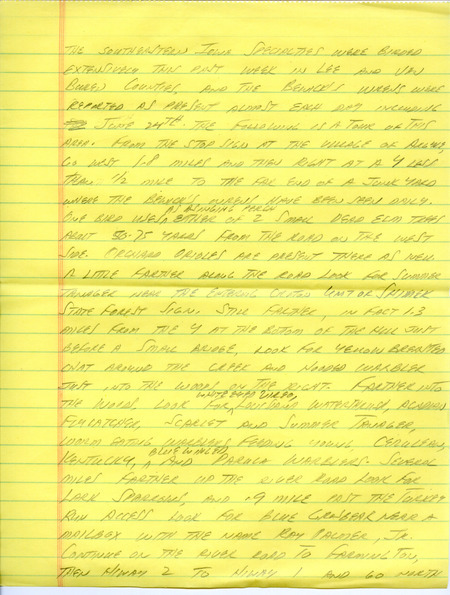 THE SOUTHEASTERN IOWA SPECIALTIES WERE BIRDED
EXTENSIVELY THIS PAST WEEK IN LEE AND VAN
BUREN COUNTIES, AND THE BEWICK'S WRENS WERE
REPORTED AS PRESENT ALMOST EACH DAY INCLUDING
JUNE 24TH. THE FOLLOWING IS A TOUR OF THIS
AREA. FROM THE STOP SIGN AT THE VILLAGE OF ARGYLE,
GO WEST 1.8 MILES AND THEN RIGHT AT A Y LESS
THAN 1/2 MILE TO THE FAR END OF A JUNK YARD
WHERE THE BEWICK'S WRENS HAVE BEEN SEEN DAILY.
AS A SINGING PERCH
ONE BIRD USES EITHER OF 2 SMALL DEAD ELM TREES
ABOUT 50-75 YARDS FROM THE ROAD ON THE WEST
SIDE. ORCHARD ORIOLES ARE PRESENT THERE AS WELL.
A LITTLE FARTHER ALONG THE ROAD LOOK FOR SUMMER
TANAGER NEAR THE ENTERING CROTON UNIT OF SHIMEK
STATE FOREST SIGN. STILL FARTHER, IN FACT 1.3
MILES FROM THE Y AT THE BOTTOM OF THE HILL JUST
BEFORE A SMALL BRIDGE, LOOK FOR YELLOW BREASTED
CHAT AROUND THE CREEK AND HOODED WARBLER
JUST INTO THE WOODS ON THE RIGHT. FARTHER INTO
WHITE EYED VIREO,
THE WOODS, LOOK FOR LOUISIANA WATERTHRUSH, ACADIAN
FLYCATCHER, SCARLET AND SUMMER TANAGER,
WORM EATING WARBLERS FEEDING YOUNG, CERULEAN,
BLUE WINGED,
KENTUCKY, AND PARULA WARBLERS. SEVERAL
MILES FARTHER UP THE RIVER ROAD LOOK FOR
LARK SPARROWS, AND .9 MILE PAST THE TURKEY
RUN ACCESS LOOK FOR BLUE GROSBEAK NEAR A
MAILBOX WITH THE NAME ROY PALMER, JR.
CONTINUE ON THE RIVER ROAD TO FARMINGTON,
THEN HIWAY 2 TO HIWAY 1 AND GO NORTH